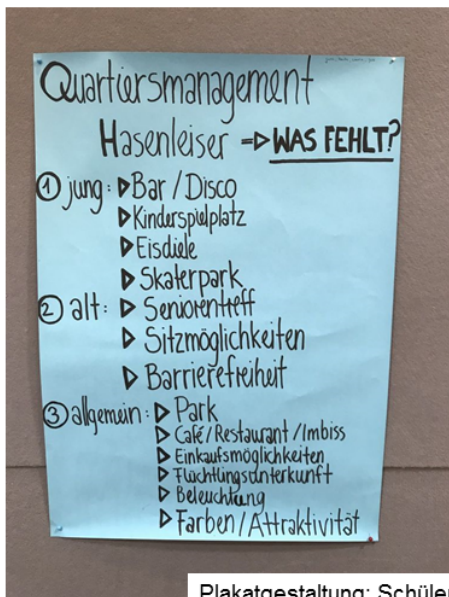 Quartiersmanagement
Hasenleiser => WAS FEHLT?
① jung: ▷ Bar / Disco
▷ Kinderspielplatz
▷ Eisdiele
▷ Skaterpark
② alt: ▷ Seniorentreff
▷ Sitzmöglichkeiten
▷ Barrierefreiheit
③ allgemein: ▷ Park
▷ Café / Restaurant / Imbiss
▷ Einkaufsmöglichkeiten
▷ Flüchtlingsunterkunft
▷ Beleuchtung
▷ Farben / Attraktivität
Plakatgestaltung: